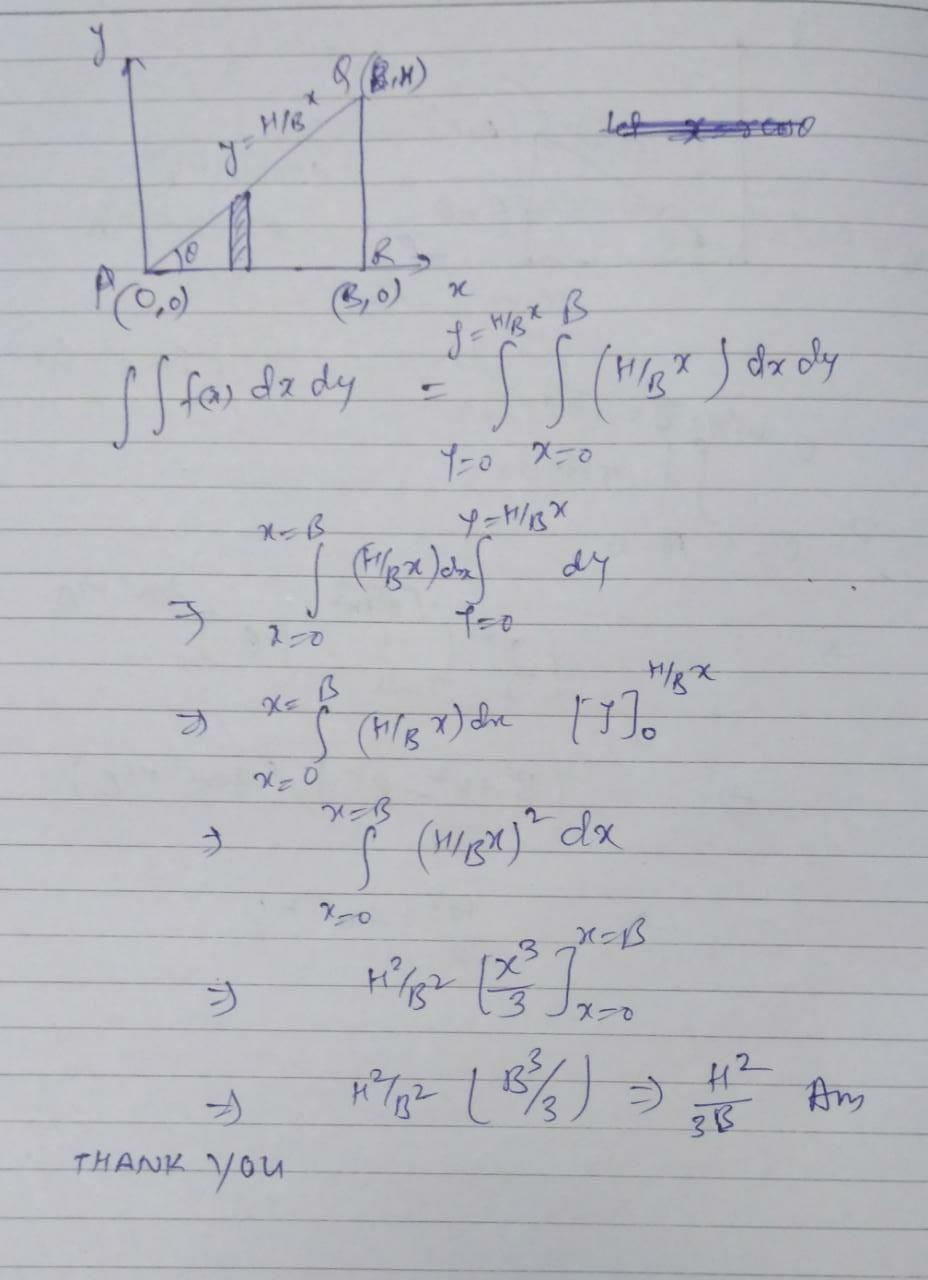 y
Q (B,H)
y = H/B x
Let x = r cosθ
θ
R
P (0,0)
(B,0)
x
∫∫ f(x) dx dy = ∫_{y=0}^{y=H/B x} ∫_{x=0}^{B} (H/B x) dx dy
⇒ ∫_{x=0}^{x=B} (H/B x) dx ∫_{y=0}^{y=H/B x} dy
⇒ ∫_{x=0}^{x=B} (H/B x) dx [y]_0^{H/B x}
⇒ ∫_{x=0}^{x=B} (H/B x)² dx
⇒ H²/B² [x³/3]_{x=0}^{x=B}
⇒ H²/B² (B³/3) ⇒ H²/3B Ans
THANK YOU